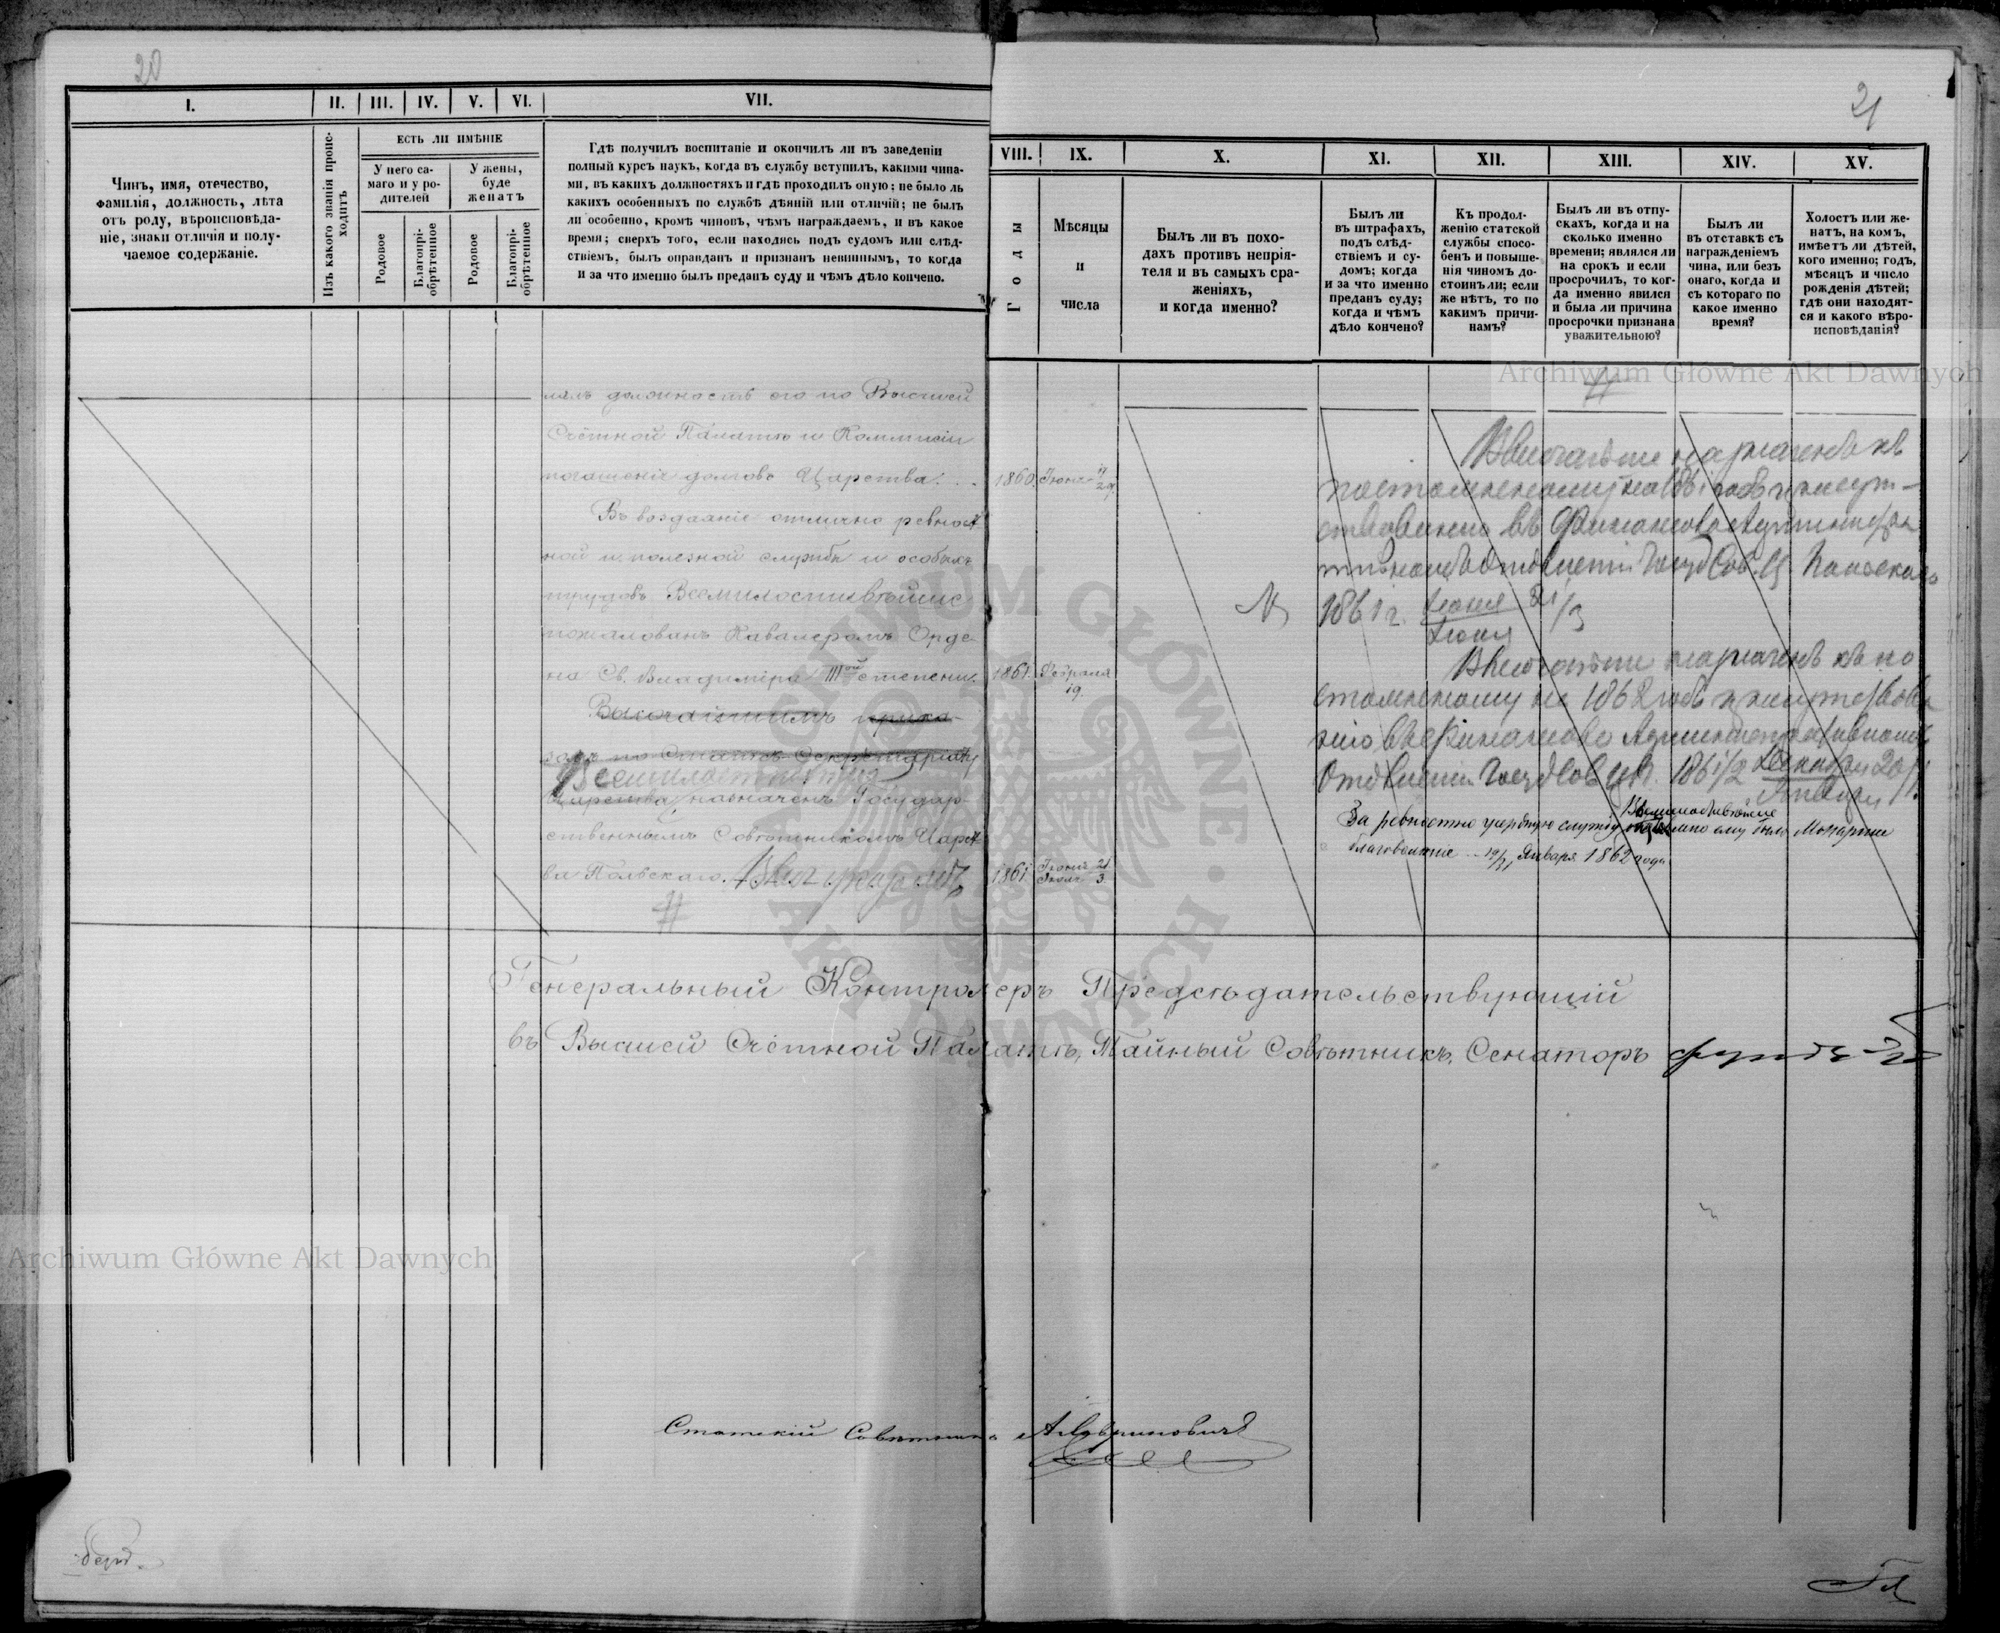 20
I. II. III. IV. V. VI. VII.
Чинъ, имя, отечество,
фамилія, должность, лѣта
отъ роду, вѣроисповѣда-
ніе, знаки отличія и полу-
чаемое содержаніе.
Изъ какого званія проис-
ходитъ
ЕСТЬ ЛИ ИМѢНІЕ
У него са-
маго и у ро-
дителей
У жены,
буде
женатъ
Родовое
Благопрі-
обрѣтенное
Родовое
Благопрі-
обрѣтенное
Гдѣ получилъ воспитаніе и окончилъ ли въ заведеніи
полный курсъ наукъ, когда въ службу вступилъ, какими чина-
ми, въ какихъ должностяхъ и гдѣ проходилъ оную; не было ль
какихъ особенныхъ по службѣ дѣяній или отличій; не былъ
ли особенно, кромѣ чиновъ, чѣмъ награждаемъ, и въ какое
время; сверхъ того, если находясь подъ судомъ или слѣд-
ствіемъ, былъ оправданъ и признанъ невиннымъ, то когда
и за что именно былъ преданъ суду и чѣмъ дѣло кончено.
лялъ должность его по Высшей
Счётной Палатѣ и Коммисіи
погашенія долговъ Царства. . .
Въ воздаяніе отлично ревност
ной и полезной службы и особыхъ
трудовъ Всемилостивѣйше
пожалованъ Кавалеромъ Орде-
на Св. Владиміра IIIой степени.
Высочайшимъ прика-
зомъ по Статсъ Секретаріату
Всемилостивѣйше
Царства, назначенъ Государ-
ственнымъ Совѣтникомъ Царст
ва Польскаго.
#
21
VIII. IX. X. XI. XII. XIII. XIV. XV.
Годы
Мѣсяцы
и
числа
Былъ ли въ похо-
дахъ противъ непрія-
теля и въ самыхъ сра-
женіяхъ,
и когда именно?
Былъ ли
въ штрафахъ,
подъ слѣд-
ствіемъ и су-
домъ; когда
и за что именно
преданъ суду;
когда и чѣмъ
дѣло кончено?
Къ продол-
женію статской
службы спосо-
бенъ и повыше-
нія чиномъ до-
стоинъ ли; если
же нѣтъ, то по
какимъ причи-
намъ?
Былъ ли въ отпу-
скахъ, когда и на
сколько именно
времени; являлся ли
на срокъ и если
просрочилъ, то ког-
да именно явился
и была ли причина
просрочки признана
уважительною?
Былъ ли
въ отставкѣ съ
награжденіемъ
чина, или безъ
онаго, когда и
съ котораго по
какое именно
время?
Холостъ или же-
натъ, на комъ,
имѣетъ ли дѣтей,
кого именно; годъ,
мѣсяцъ и число
рожденія дѣтей;
гдѣ они находят-
ся и какого вѣро-
исповѣданія?
#
1860. Іюня 17/29
1861. Февраля 19.
1861 Іюня 21 Іюля 3.
Высочайше назначенъ къ
постоянному на 1861 годъ присут-
ствованію въ Финансово Администра
тивномъ Отдѣленіи Госуд Сов. Ц Польскаго
1861 г. Іюня 21/3 Іюля
Высочайше назначенъ къ по
стоянному на 1862 годъ присутствова
нію въ Финансово Административномъ
Отдѣленіи Госуд Сов Ц П. 1861/2 Декабря 20/1 Января
Всемилостивѣйше
За ревностно усердную службу объявлено ему было Монаршее
благоволеніе 19/31 Января 1862 года
Генеральный Контролеръ Предсѣдательствующій
въ Высшей Счётной Палатѣ, Тайный Совѣтникъ, Сенаторъ
Статскій Совѣтникъ
Archiwum Główne Akt Dawnych
Archiwum Główne Akt Dawnych
ARCHIWUM GŁÓWNE AKT DAWNYCH